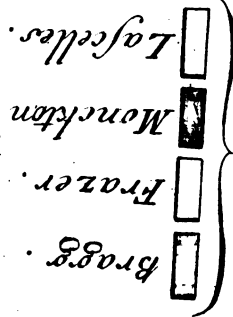 Bragg.
Frazer.
Monckton
Laſcelles.